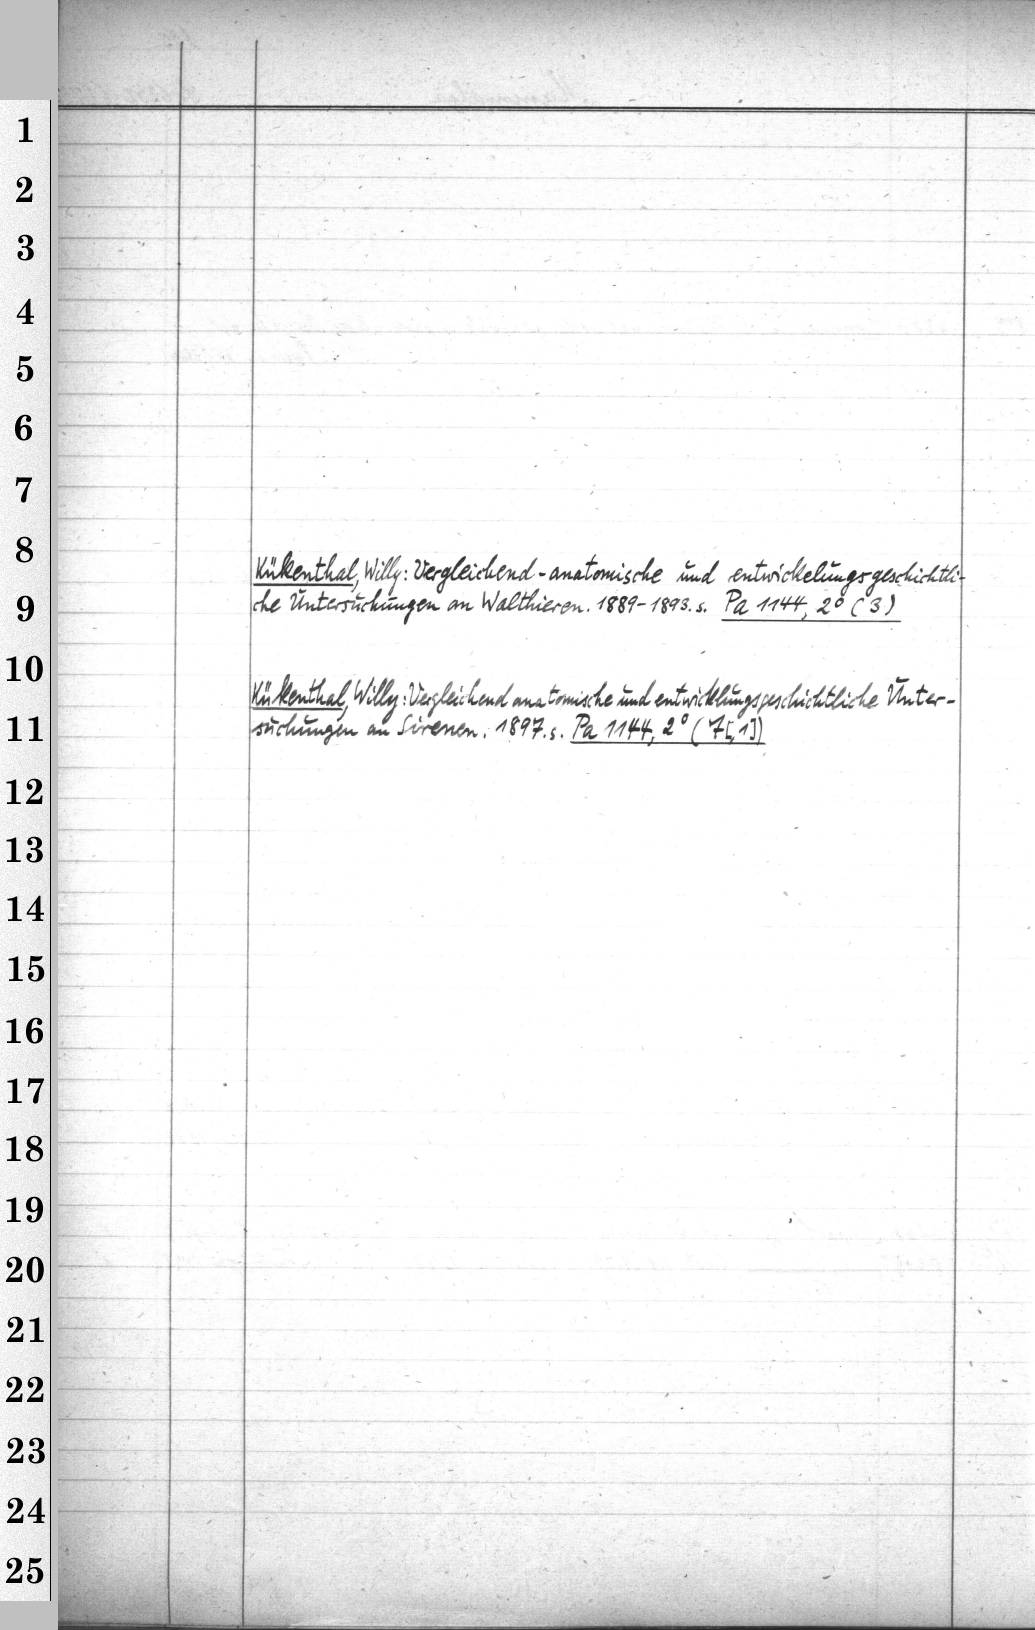 1
2
3
4
5
6
7
8
Kükenthal, Willy: Vergleichend-anatomische und entwickelungsgeschichtli-
9
che Untersuchungen an Walthieren. 1889-1893. s. Pa 1144, 2° (3)
10
Kükenthal, Willy: Vergleichend anatomische und entwicklungsgeschichtliche Unter-
11
suchungen an Sirenen. 1897. s. Pa 1144, 2° (7[,1])
12
13
14
15
16
17
18
19
20
21
22
23
24
25